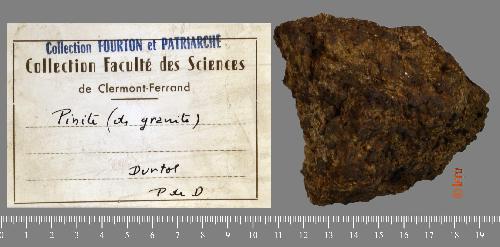 Collection FOURTON et PATRIARCHE
Collection Faculté des Sciences
de Clermont-Ferrand
Pinite (de granite)
Durtol
P de D
0 1 2 3 4 5 6 7 8 9 10 11 12 13 14 15 16 17 18 19